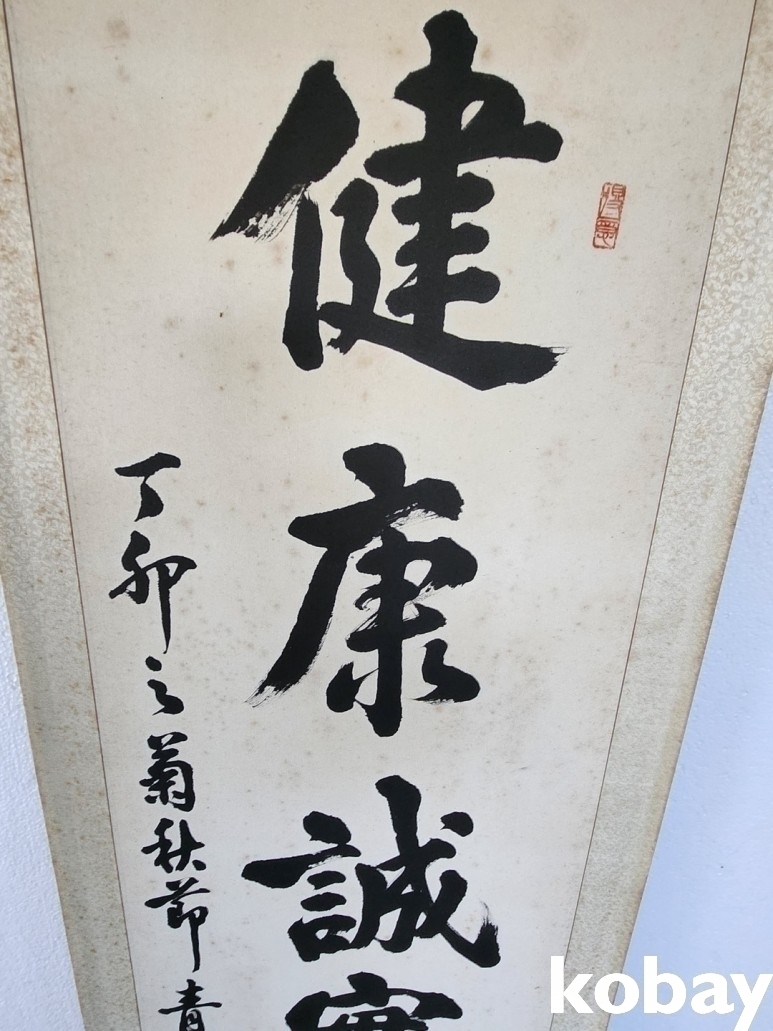 健康誠實
丁卯之菊秋節青
kobay